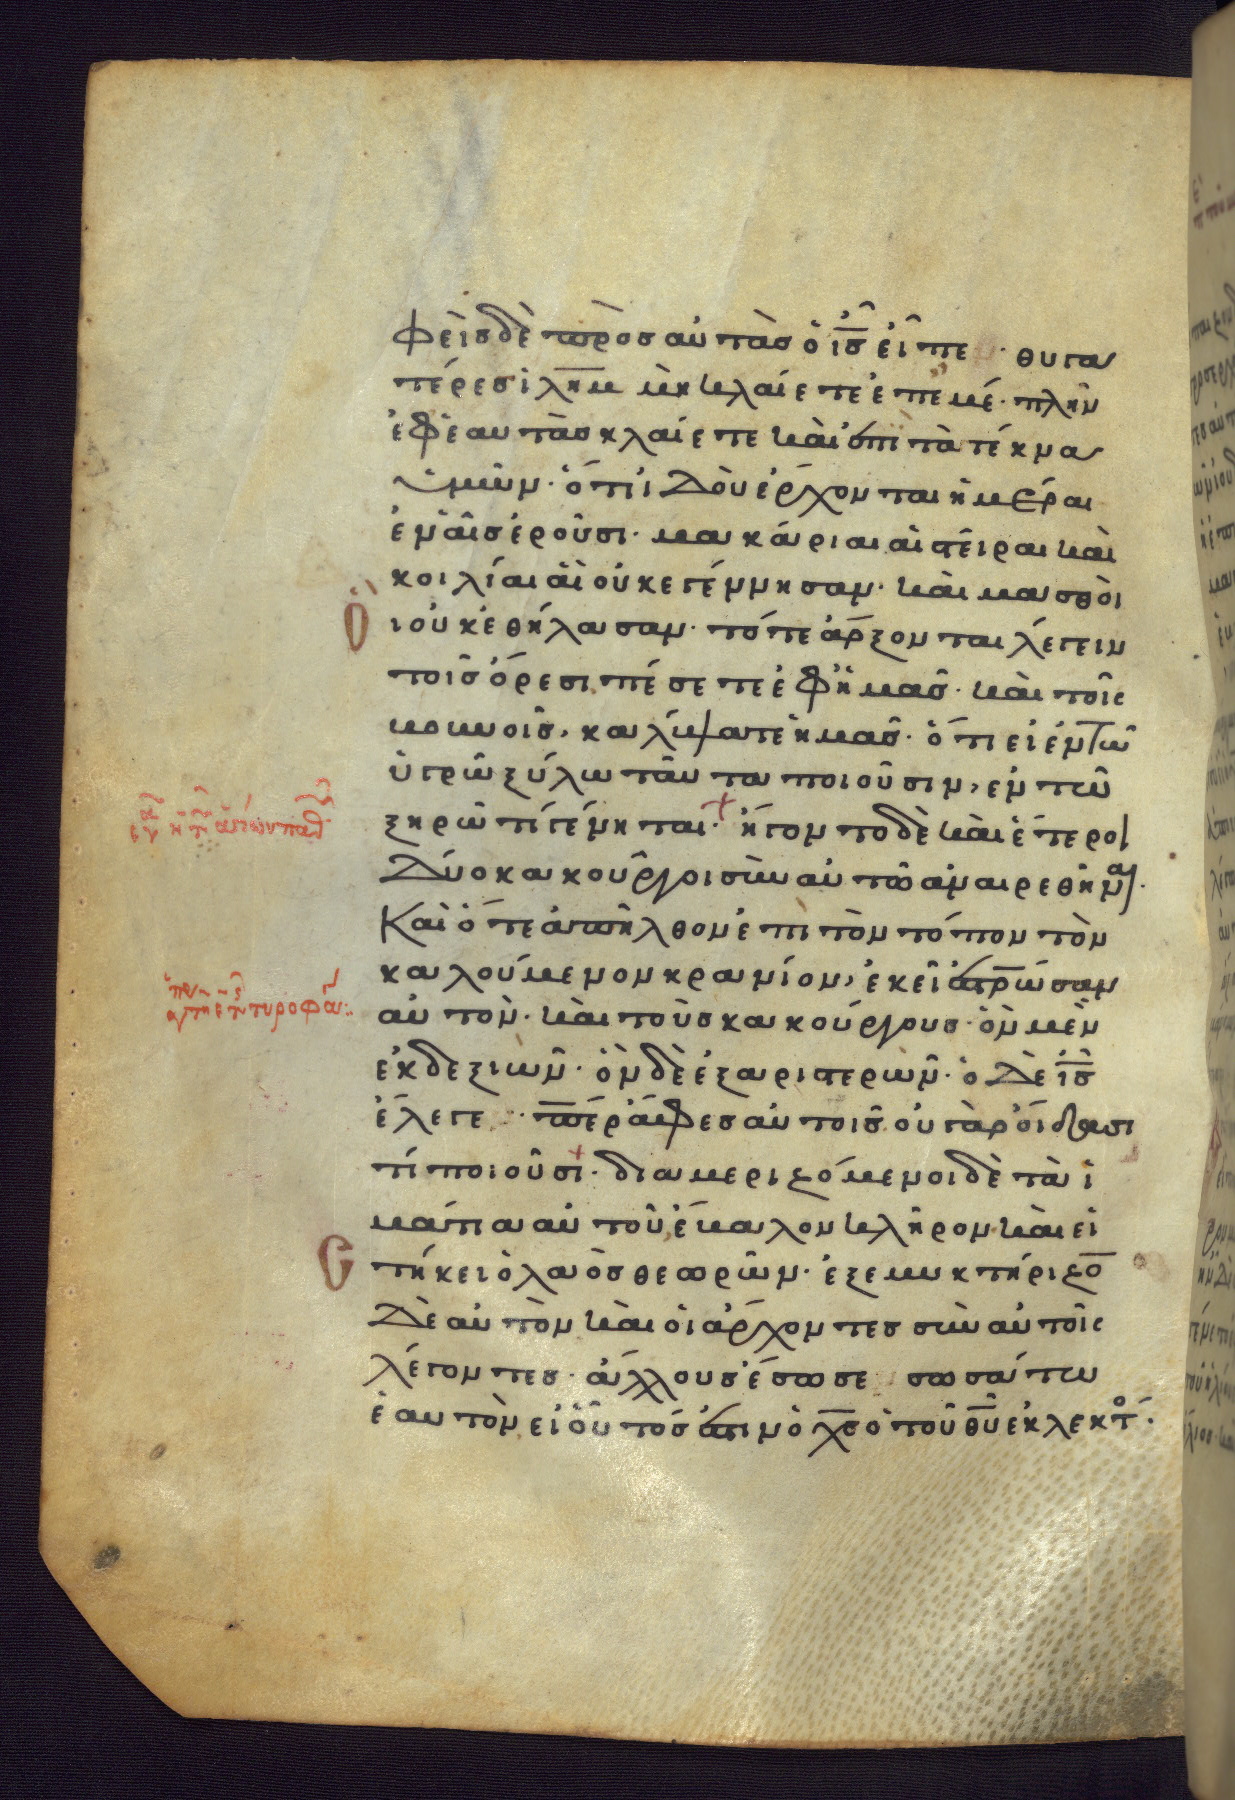 φεὶσ δὲ πρὸσ αὐτὰσ ὁ ἰσ εἶπε· θυγα
τέρεσ ιλημ μὴ κλαίετε ἐπεμέ· πλὴν
ἐφἑαυτὰσ κλαίετε καὶ ἐπι τὰ τέκνα
ὑμῶν· ὅτι ἰδοὺ ἔρχονται ἡμέραι
ἐν αἷσ ἐροῦσι· μακάριαι αἱ στεῖραι καὶ
κοιλίαι αἳ οὐκ ἐγέννησαν· καὶ μασθοὶ
οἳ οὐκ ἐθήλασαν· τότε ἄρξονται λέγειν
τοῖσ ὄρεσι πέσετε ἐφἡμᾶσ· καὶ τοῖσ
βουνοῖσ, καλύψατε ἡμᾶσ· ὅτι εἰ ἐν τῶ
ὑγρῶ ξύλω ταῦτα ποιοῦσιν, ἐν τῶ
ξηρῶ τί γένηται· ἤγοντο δὲ καὶ ἕτεροι
δύο κακοῦργοι σὺν αὐτῶ ἀναιρεθῆναι·
Καὶ ὅτε ἀπῆλθον ἐπι τὸν τόπον τὸν
καλούμενον κρανίον, ἐκεῖ ἐστρωσαν
αὐτὸν· καὶ τοὺσ κακούργουσ· ὃν μὲν
ἐκ δεξιῶν· ὃν δὲ ἐξ αριστερῶν· ὁ δὲ ἰσ
ἔλεγε· περ ἄφεσ αὐτοῖσ οὐ γὰρ οἴδασι
τί ποιοῦσι· διαμεριζόμενοι δὲ τὰ ἱ
μάτια αὐτοῦ ἔβαλον κλῆρον καὶ εἱ
στήκει ὁ λαὸσ θεωρῶν· ἐξεμυκτήριζο
δὲ αὐτὸν καὶ οἱ ἄρχοντεσ σὺν αὐτοῖσ
λέγοντεσ· ἄλλουσ ἔσωσε σωσάτω
ἑαυτὸν εἰ οὗτόσ ἐστιν ὁ χσ ὁ τοῦ θυ ἐκλεκτ·